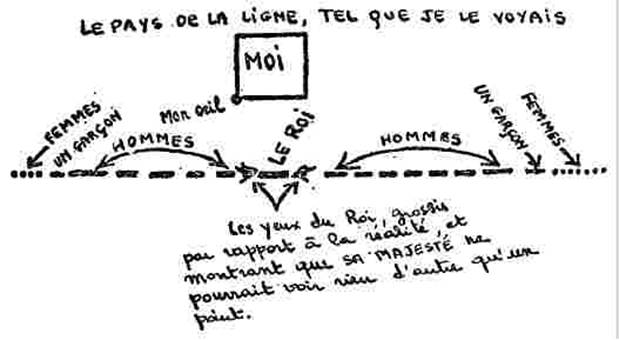 LE PAYS DE LA LIGNE, TEL QUE JE LE VOYAIS
MOI
Mon œil
LE ROI
FEMMES
UN GARÇON
HOMMES
HOMMES
UN GARÇON
FEMMES
Les yeux du Roi, grossis
par rapport à la réalité, et
montrant que SA MAJESTÉ ne
pourrait voir rien d'autre qu'un
point.